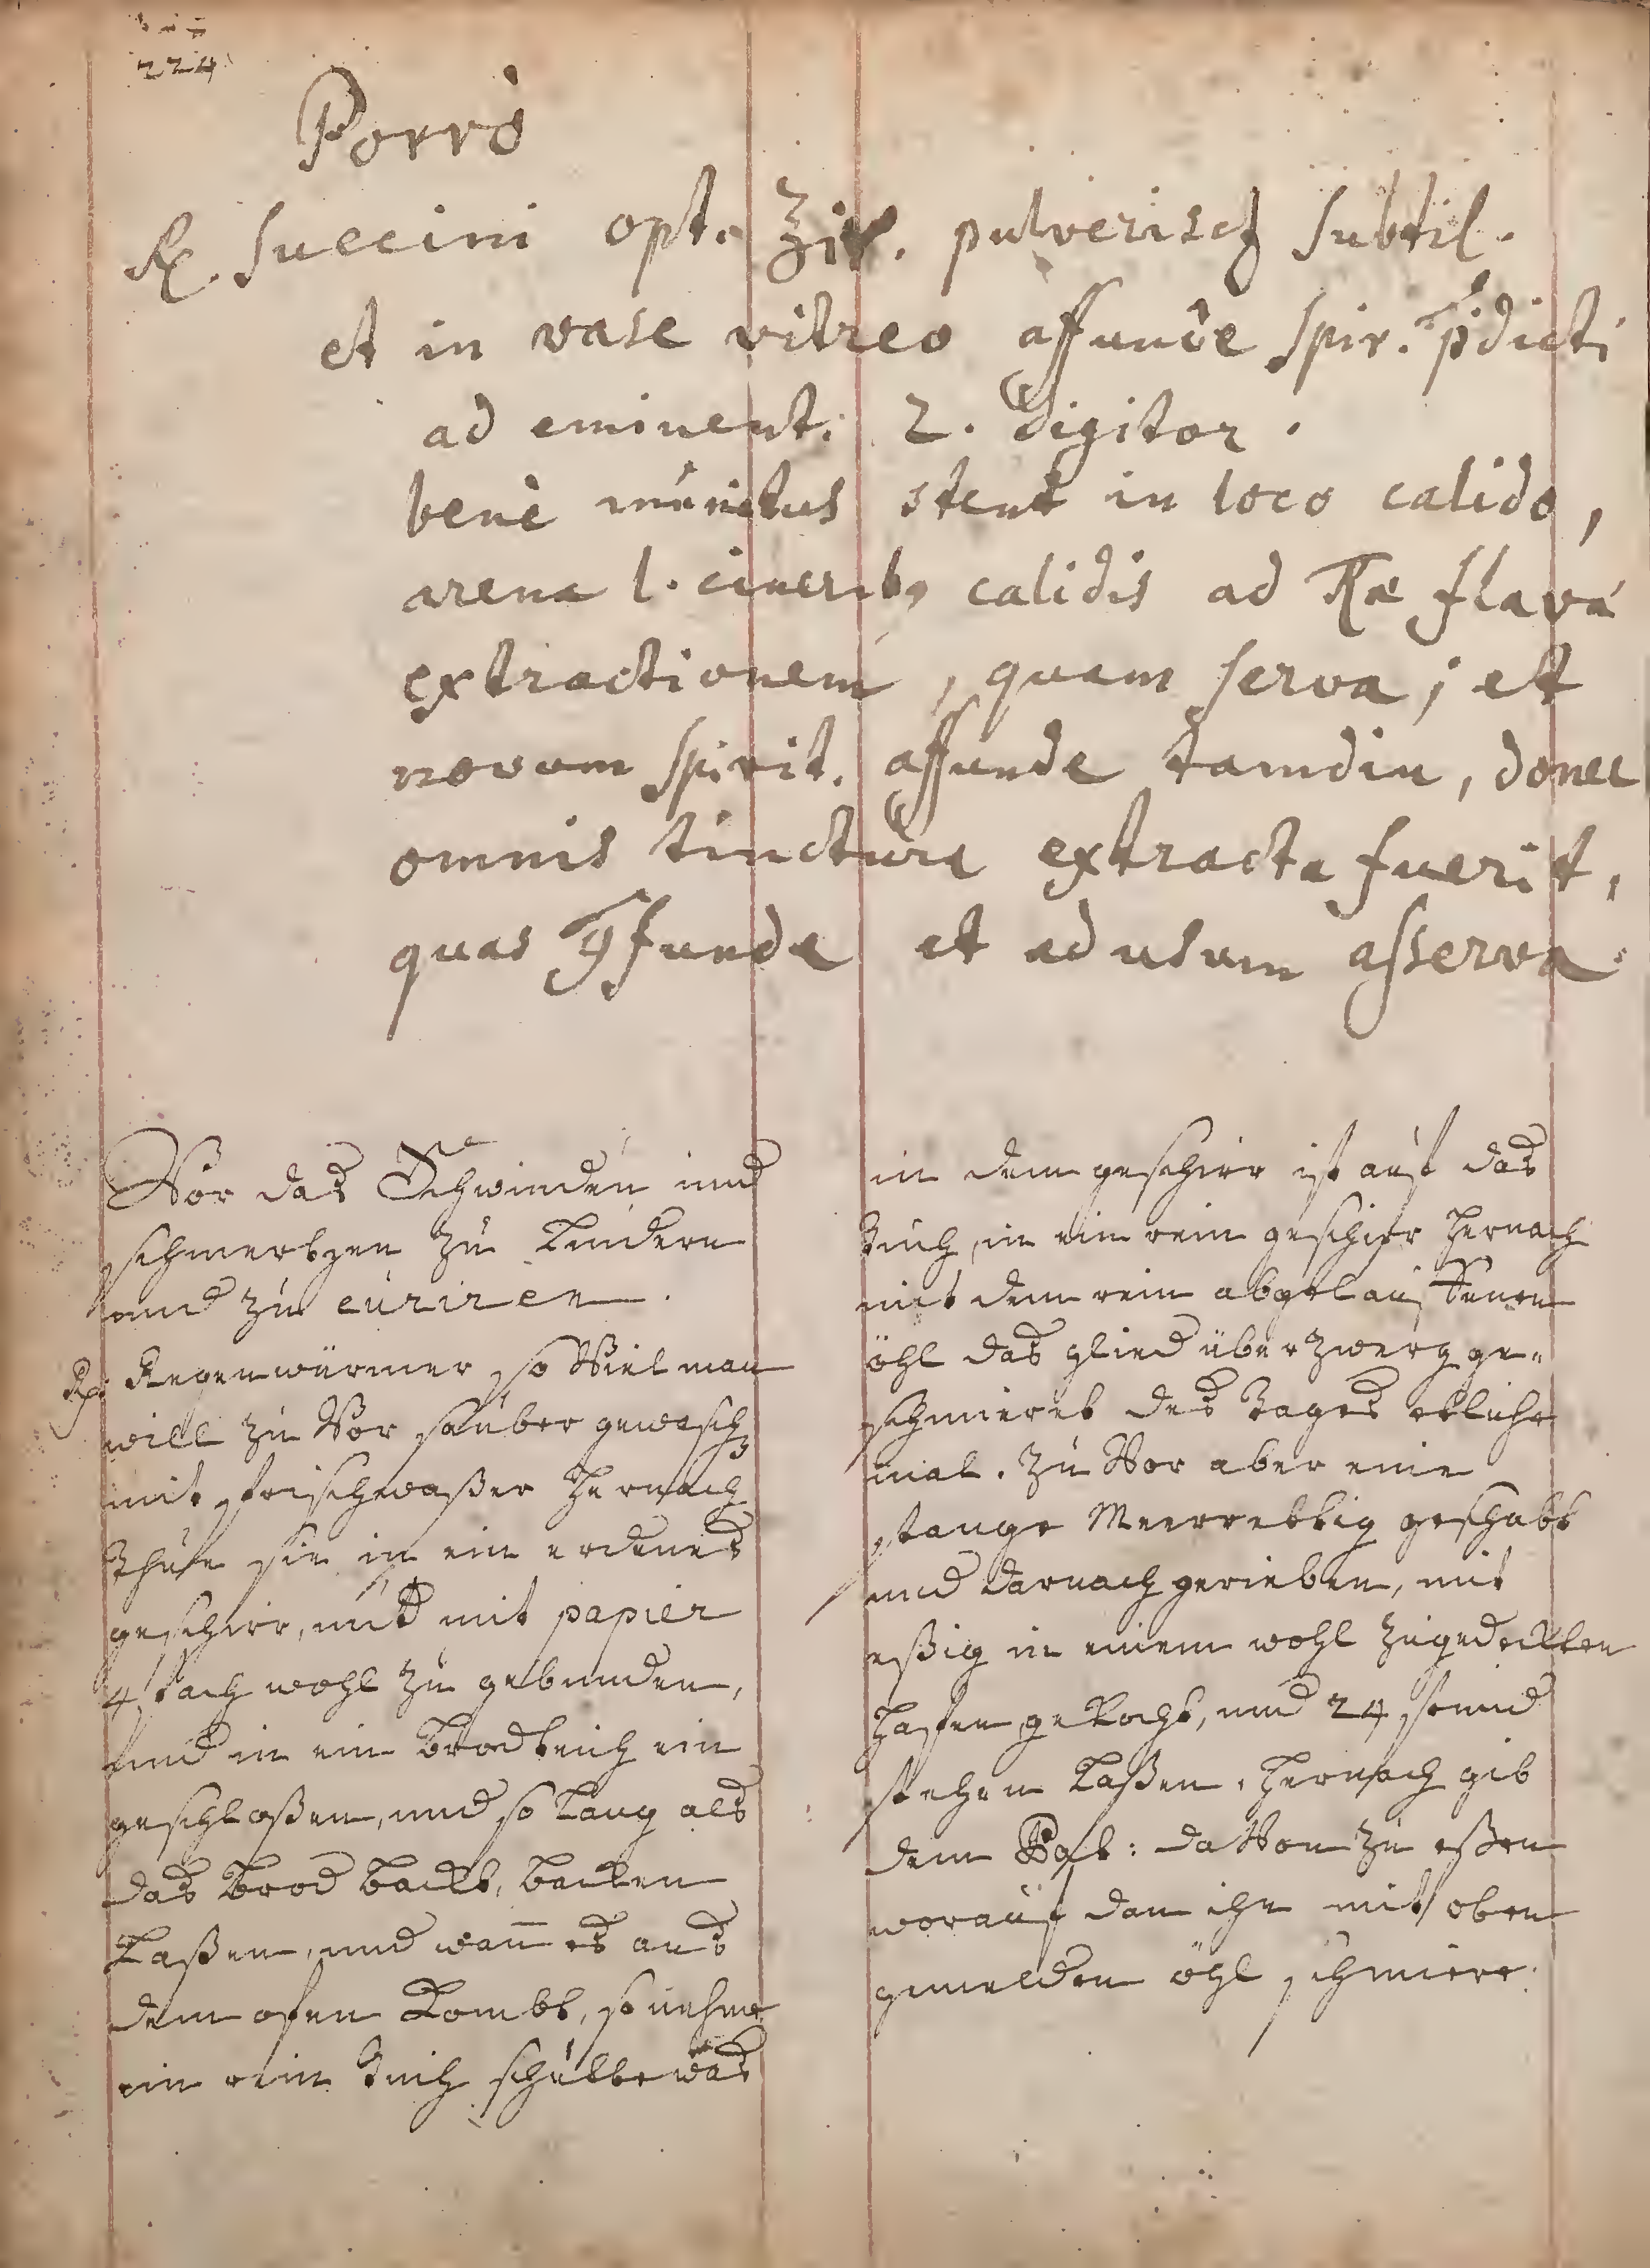 224
Porrò
℞. Succini opt. ʒiv. pulverisetʒ subtil.
et in vase vitreo affunde spir. p̄dicti
ad eminent. 2. digitor.
benè munitus stent in loco calido,
arena l. cinerib9 calidis ad Ræ flavá
extractionem, quam serva; et
novum spirit. affunde tamdiu, donec
omnis tinctura extracta fuerit,
quas 9funde et ad usum asserva.
Vor das Schwinden und
schmertzen zu Lindern
und zu curiren.
℞. Regenwürmer so Viel man
will zu Vor sauber gewasch
mit frischwaßer Hernach
Thue sie in ein erdenes
geschirr, und mit papier
4 fach wohl zu gebunden,
und in ein Brodteich ein
geschloßen, und so Lang als
das Brod backt, backen
Laßen, und wan̄ es aus
dem ofen Kombt, so nehme
ein rein Tuch schütte was
in dem geschirr ist auf das
Tuch, in ein rein geschirr Hernach
mit dem rein abgelauffenen
öhl das glied überzwerg ge-
schmieret des Tages etliche
mal. Zu Vor aber eine
stange Meerrettig geschabt
und darnach gerieben, mit
eßig in einem wohl zugedeckten
Haffen gekocht, und 24 stund
stehen Laßen. Hernach gib
dem Pat: da Von zu eßen
worauf dan ihn mit oben
gemelden öhl schmiere.